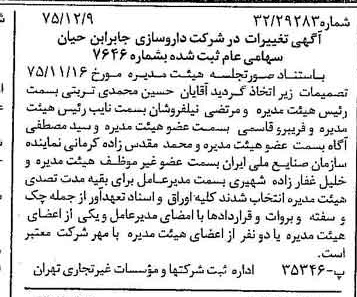 شماره ۳۲/۲۹۲۸۳ ۷۵/۱۲/۹
آگهی تغییرات در شرکت داروسازی جابرابن حیان
سهامی عام ثبت شده بشماره ۷۶۴۶
باستناد صورتجلسه هیئت مدیره مورخ ۷۵/۱۱/۱۶
تصمیمات زیر اتخاذ گردید آقایان حسین محمدی تربتی بسمت
رئیس هیئت مدیره و مرتضی نیلفروشان بسمت نایب رئیس هیئت
مدیره و فریبرو قاسمی بسمت عضو هیئت مدیره و سید مصطفی
آگاه بسمت عضو هیئت مدیره و محمد مقدس زاده کرمانی نماینده
سازمان صنایع ملی ایران بسمت عضو غیر موظف هیئت مدیره و
خلیل غفار زاده شهیری بسمت مدیرعامل برای بقیه مدت تصدی
هیئت مدیره انتخاب شدند کلیه اوراق و اسناد تعهدآور از جمله چک
و سفته و بروات و قراردادها با امضای مدیرعامل و یکی از اعضای
هیئت مدیره یا دو نفر از اعضای هیئت مدیره با مهر شرکت معتبر
است.
پ-۳۵۳۴۶ اداره ثبت شرکتها و مؤسسات غیرتجاری تهران